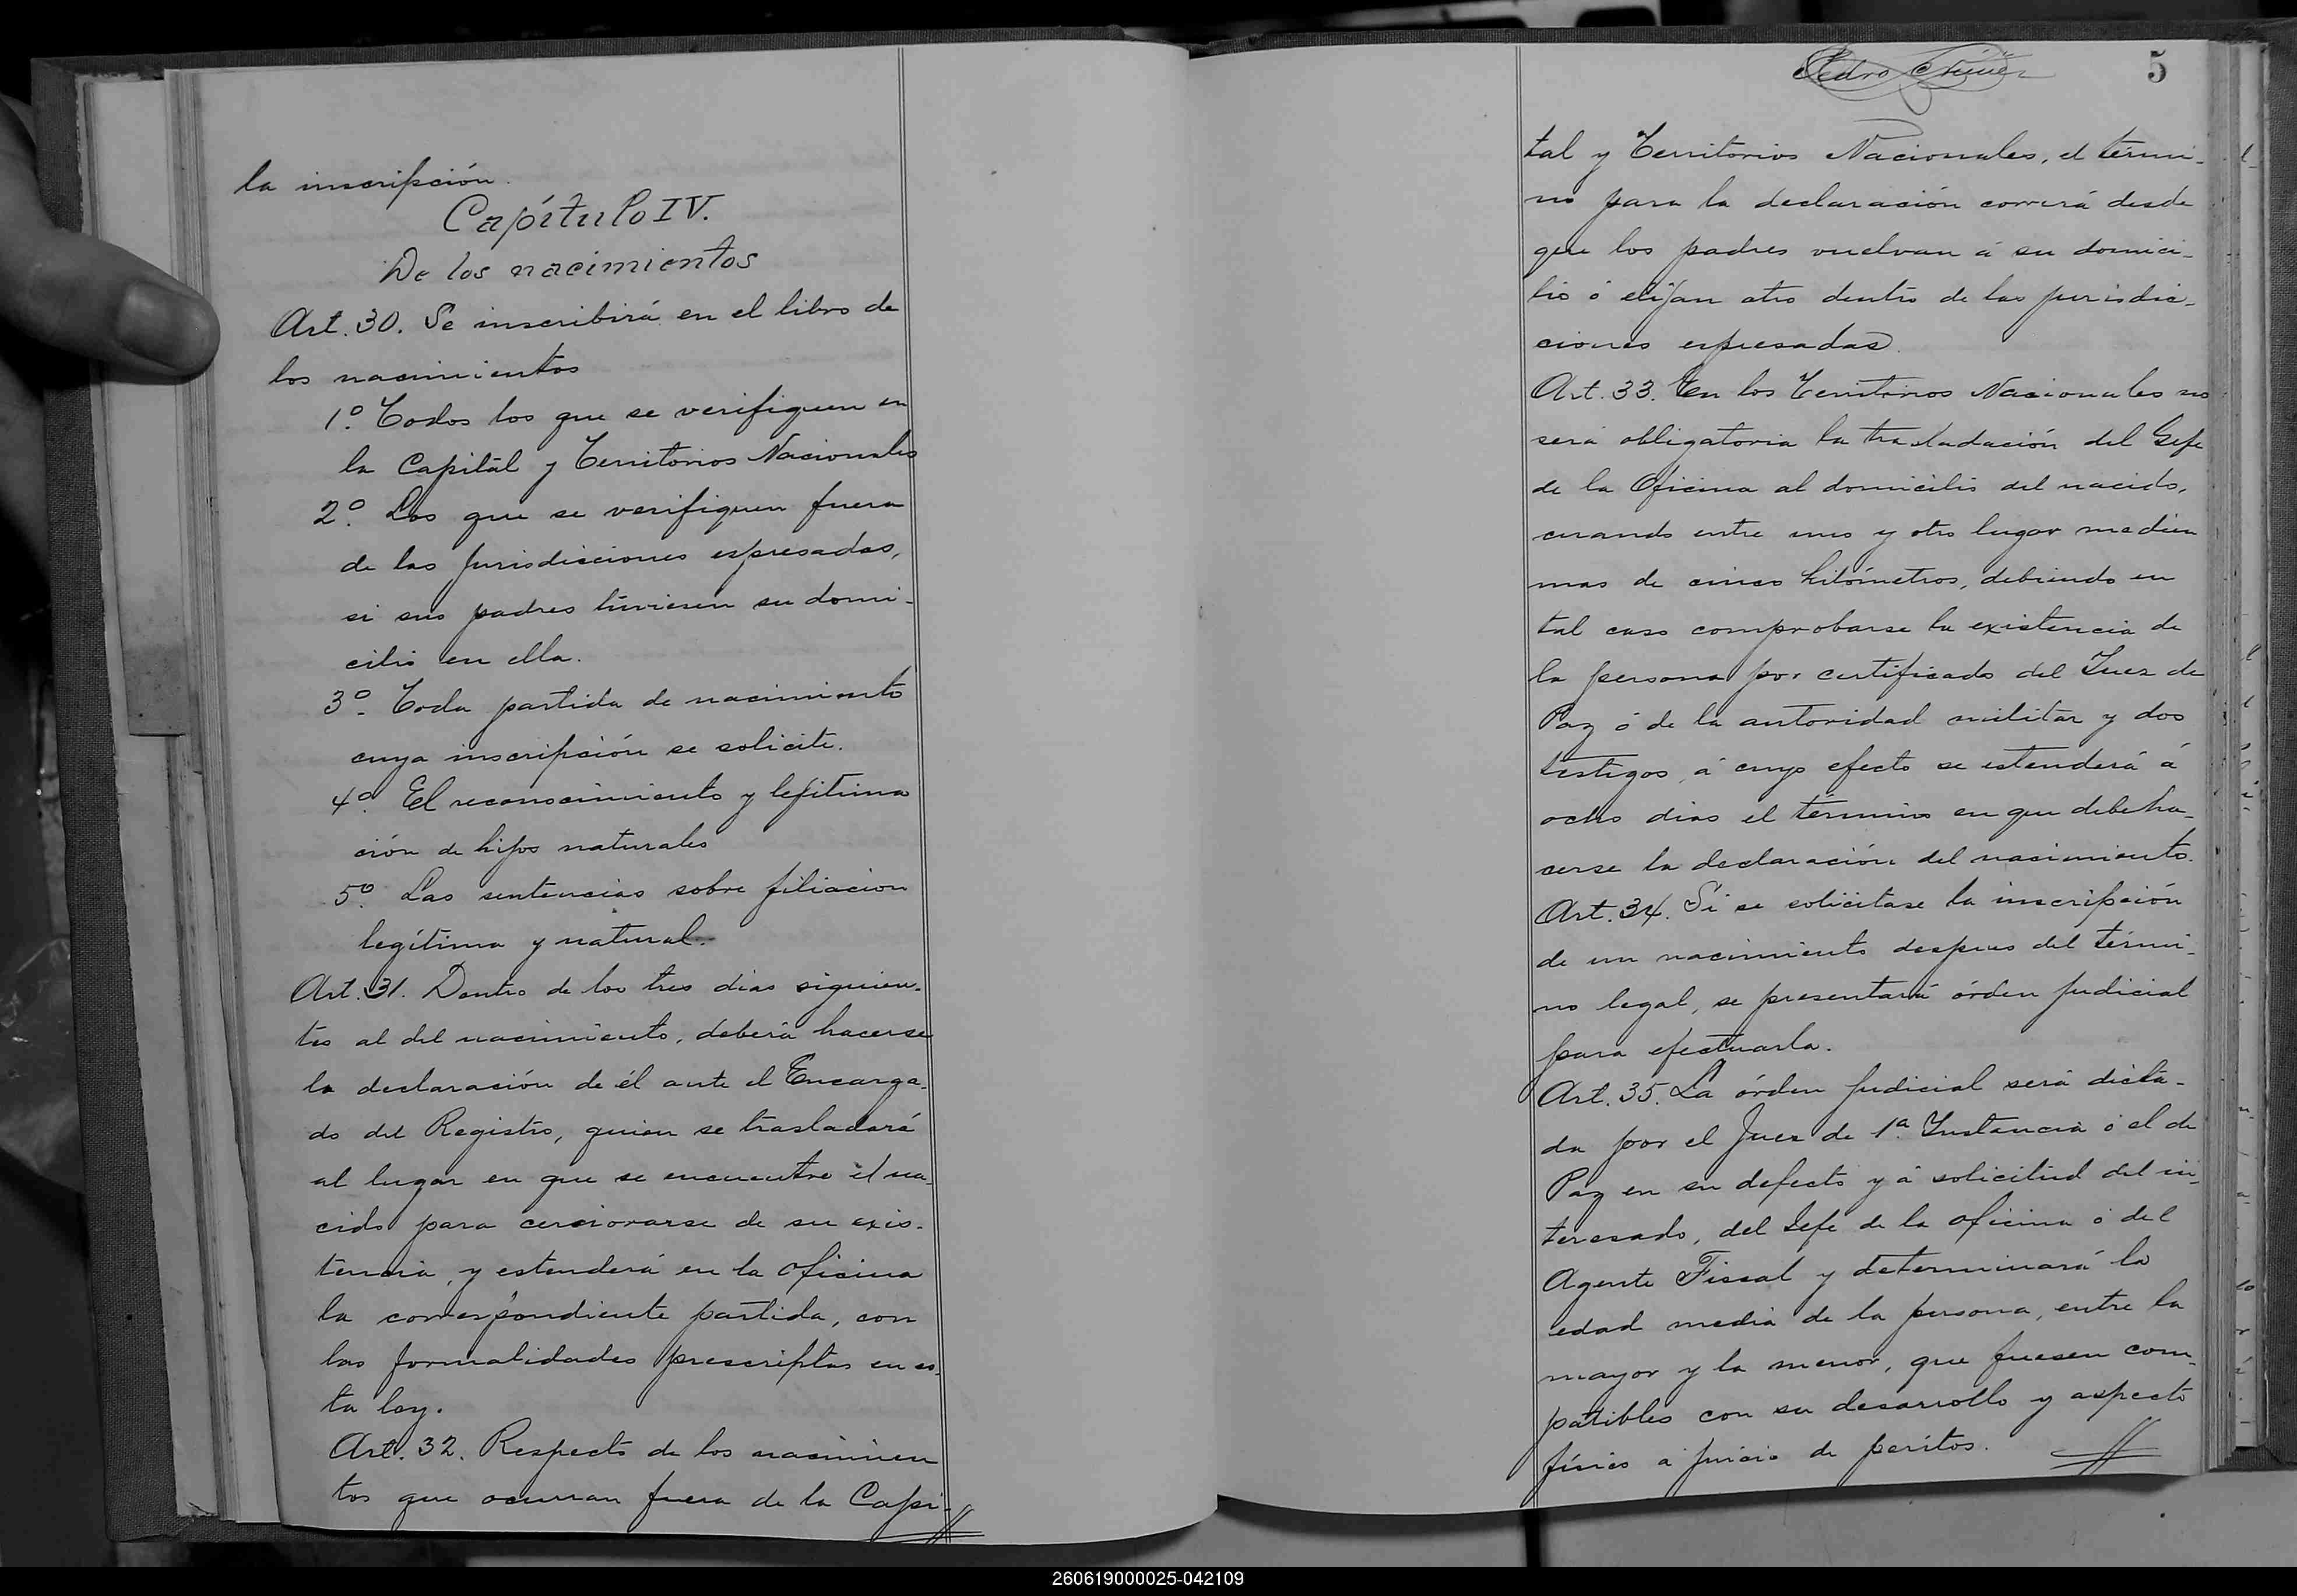 la inscripción.
Capítulo IV.
De los nacimientos
Art. 30. Se inscribirá en el libro de
los nacimientos
1º. Todos los que se verifiquen en
la Capital y Territorios Nacionales
2º. Los que se verifiquen fuera
de las jurisdicciones espresadas,
si sus padres tuviesen su domi-
cilio en ella.
3º. Toda partida de nacimiento
cuya inscripción se solicite.
4º. El reconocimiento y legitima
ción de hijos naturales
5º. Las sentencias sobre filiacion
legítima y natural.
Art. 31. Dentro de los tres dias siguien-
tes al del nacimiento, deberá hacerse
la declaración de él ante el Encarga-
do del Registro, quien se trasladará
al lugar en que se encuentre el na-
cido para cerciorarse de su exis-
tencia, y estenderá en la oficina
la correspondiente partida, con
las formalidades prescriptas en es-
ta ley.
Art. 32. Respecto de los nacimien
tos que ocurran fuera de la Capi-
5
tal y Territorios Nacionales, el térmi-
no para la declaración correrá desde
que los padres vuelvan á su domici-
lio ó elijan otro dentro de las jurisdic-
ciones espresadas.
Art. 33. En los Territorios Nacionales no
será obligatoria la trasladación del Gefe
de la Oficina al domicilio del nacido,
cuando entre uno y otro lugar medien
mas de cinco kilómetros, debiendo en
tal caso comprobarse la existencia de
la persona por certificado del Juez de
Paz ó de la autoridad militar y dos
testigos, á cuyo efecto se estenderá á
ocho dias el término en que debe ha-
cerse la declaración del nacimiento.
Art. 34. Si se solicitase la inscripción
de un nacimiento despues del térmi-
no legal, se presentará órden judicial
para efectuarla.
Art. 35. La órden judicial será dicta-
da por el Juez de 1ª. Instancia ó el de
Paz en su defecto y á solicitud del in-
teresado, del Gefe de la oficina ó del
Agente Fiscal y determinará la
edad media de la persona, entre la
mayor y la menor, que fuesen com-
patibles con su desarrollo y aspecto
físico a juicio de peritos.
260619000025-042109